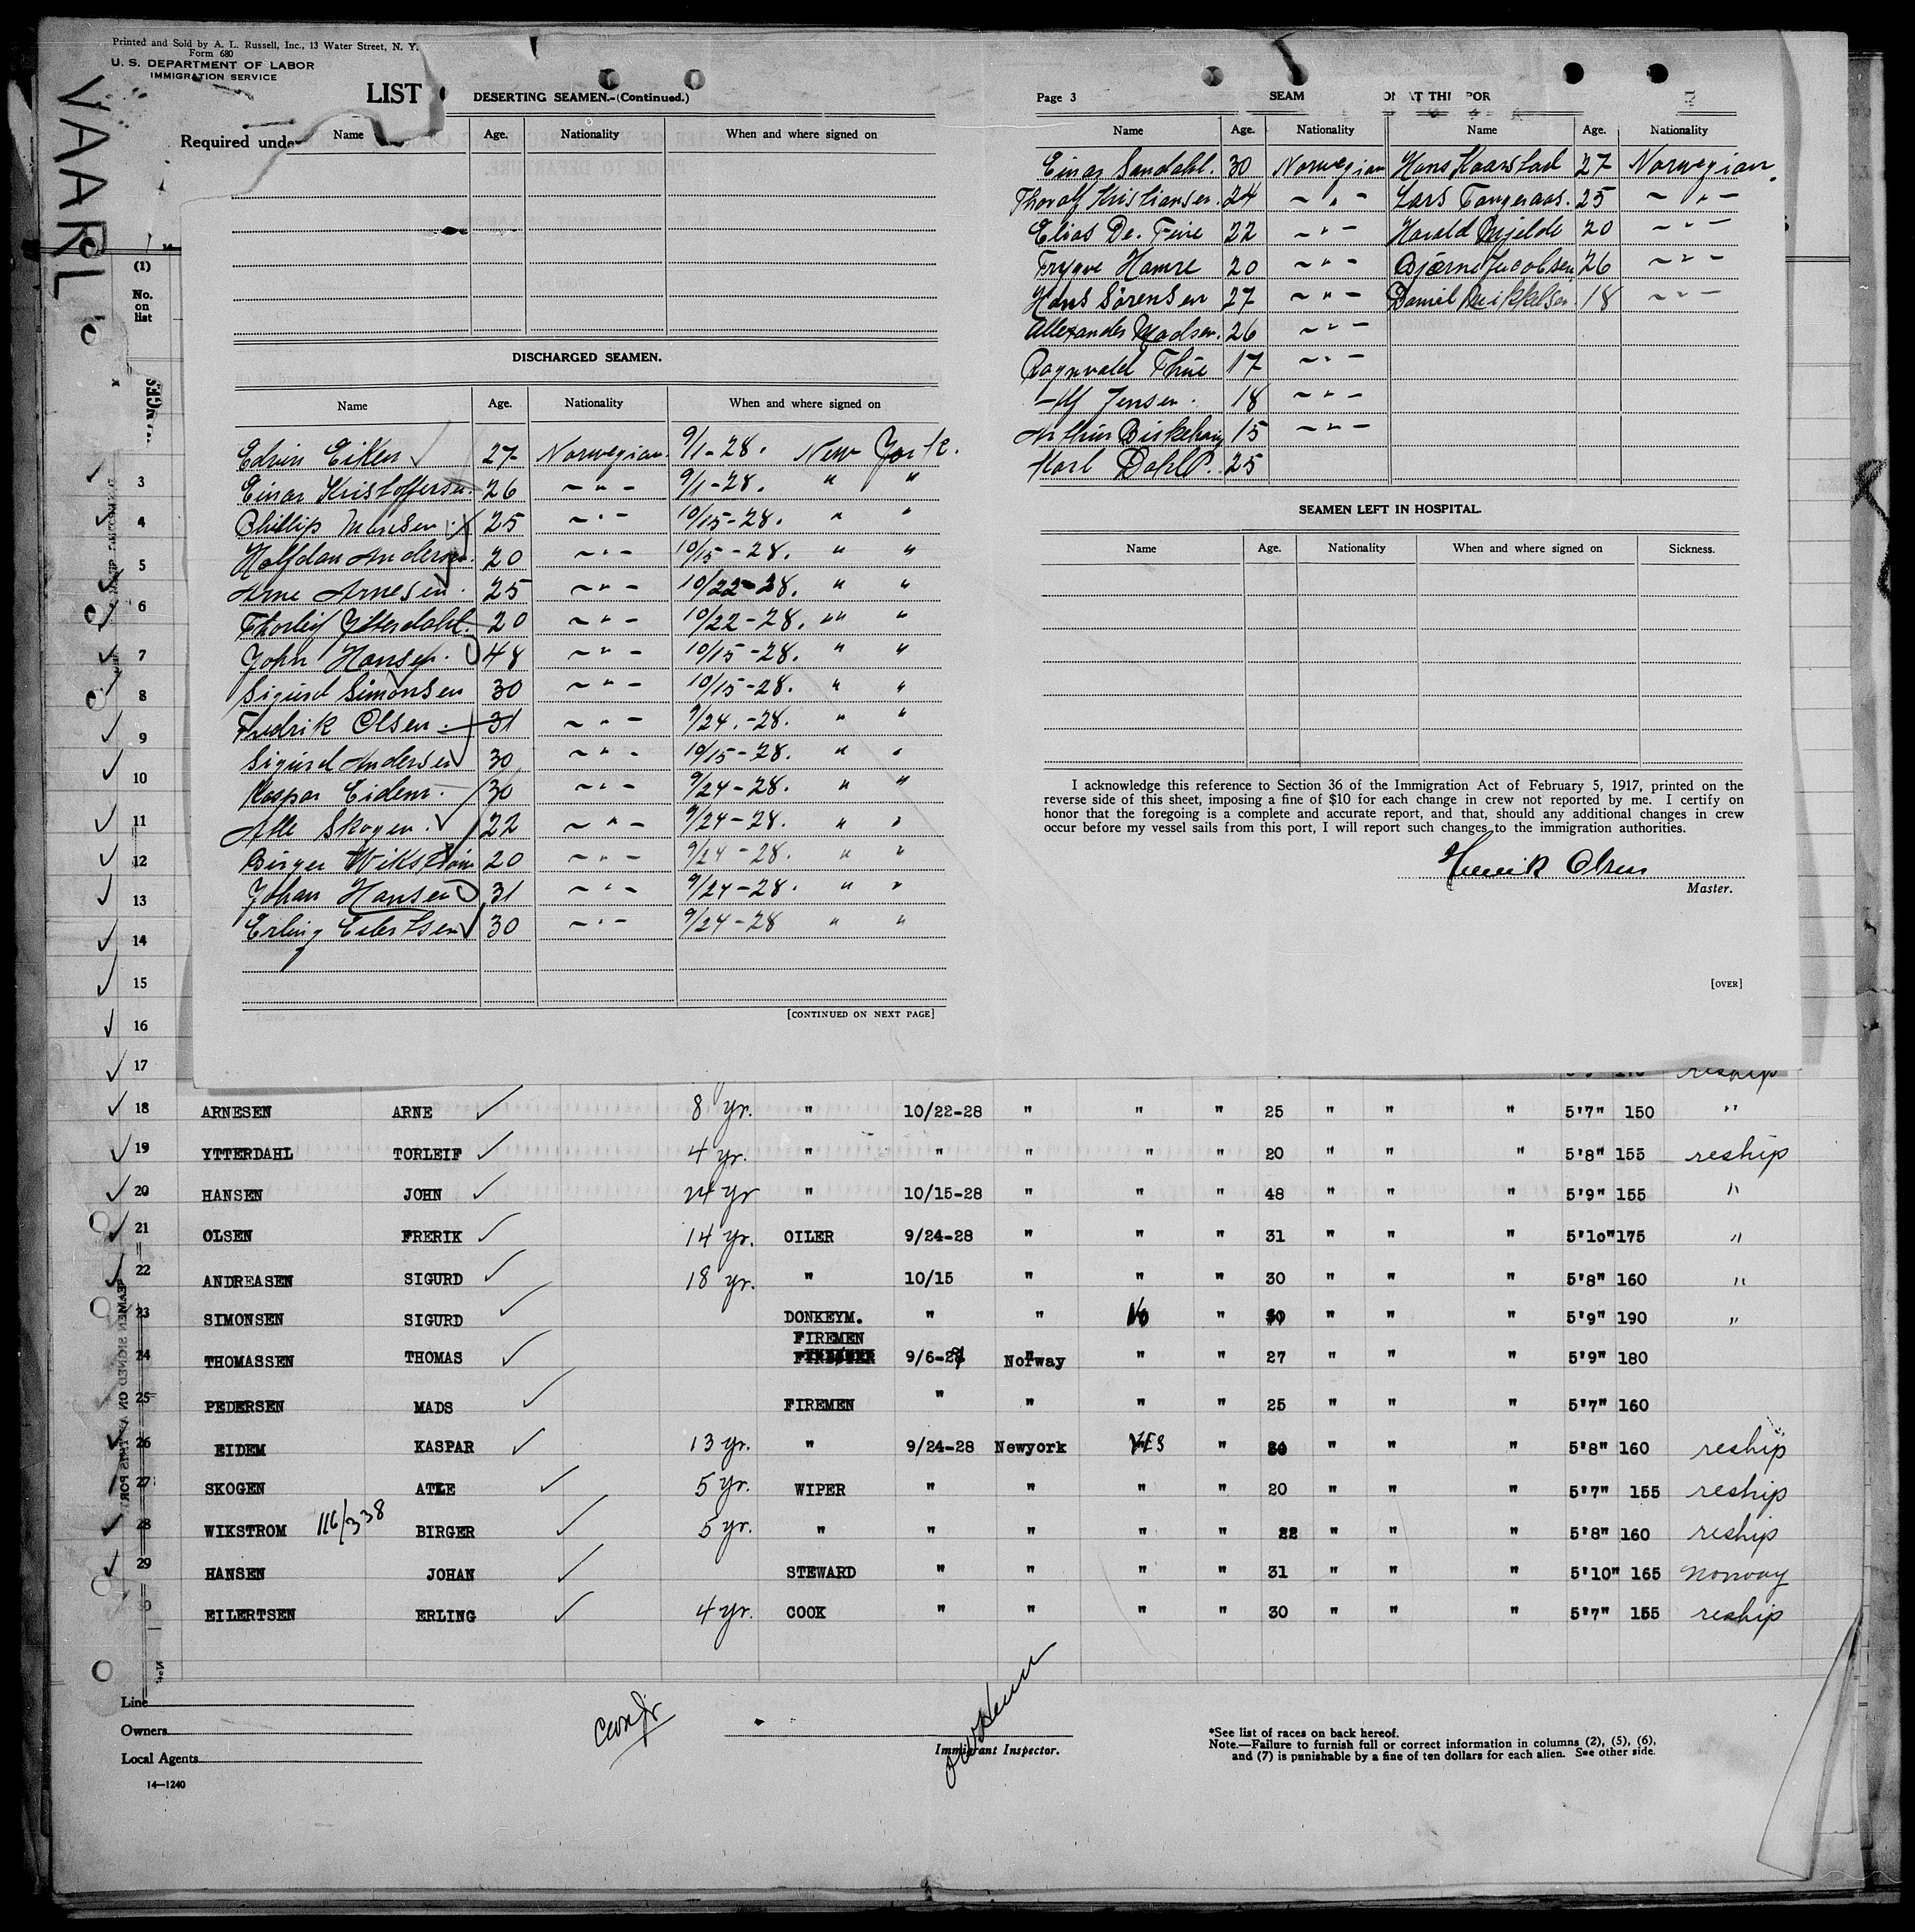 Printed and Sold by A. L. Russell, Inc., 13 Water Street, N. Y.
Form 680
U. S. DEPARTMENT OF LABOR
IMMIGRATION SERVICE
LIST
Required under
VAARLI
(1)
No.
on
list
DESERTING SEAMEN.-(Continued.)
Name Age. Nationality When and where signed on
DISCHARGED SEAMEN.
Name Age. Nationality When and where signed on
Edvin Eiken 27 Norwegian 9/1-28. New York.
Einar Kristoffersen 26 ~ " - 9/1-28. " "
Phillip Monsen 25 ~ " - 10/15-28. " "
Halfdan Andersen 20 ~ " - 10/15-28. " "
Arne Arnesen 25 ~ " - 10/22-28. " "
Thorleif Ytterdahl 20 ~ " - 10/22-28. " "
John Hansen 48 ~ " - 10/15-28. " "
Sigurd Simonsen 30 ~ " - 10/15-28. " "
Fredrik Olsen 31 ~ " - 9/24.-28. " "
Sigurd Andersen 30 ~ " - 10/15-28. " "
Kaspar Eidem 30 ~ " - 9/24-28. " "
Atle Skogen 22 ~ " - 9/24-28. " "
Birger Wikstrøm 20 ~ " - 9/24-28. " "
Johan Hansen 31 ~ " - 9/24-28. " "
Erling Eilertsen 30 ~ " - 9/24-28 " "
[CONTINUED ON NEXT PAGE]
Page 3 SEAM ON AT THI POR
Name Age. Nationality Name Age. Nationality
Einar Sandahl. 30 Norwegian Hans Kaarstad 27 Norwegian
Thoralf Kristiansen. 24 ~ " - Lars Tangeraas. 25 ~ " -
Elias De. Fine 22 ~ " - Harald Mjelde 20 ~ " -
Trygve Hamre 20 ~ " - Bjarne Jacobsen 26 ~ " -
Hans Sørensen 27 ~ " - Daniel Mikkelsen 18 ~ " -
Allexander Madsen. 26 ~ " -
Ragnvald Thue 17 ~ " -
Alf Jensen. 18 ~ " -
Arthur Birkehaug 15 ~ " -
Karl Dahl 25
SEAMEN LEFT IN HOSPITAL.
Name Age. Nationality When and where signed on Sickness.
I acknowledge this reference to Section 36 of the Immigration Act of February 5, 1917, printed on the
reverse side of this sheet, imposing a fine of $10 for each change in crew not reported by me. I certify on
honor that the foregoing is a complete and accurate report, and that, should any additional changes in crew
occur before my vessel sails from this port, I will report such changes to the immigration authorities.
Henrik Olsen
Master.
[OVER]
3
4
5
6
7
8
9
10
11
12
13
14
15
16
17 reship
18 ARNESEN ARNE 8 yr. " 10/22-28 " " " 25 " " " 5'7" 150 "
19 YTTERDAHL TORLEIF 4 yr. " " " " " 20 " " " 5'8" 155 reship
20 HANSEN JOHN 24 yr " 10/15-28 " " " 48 " " " 5'9" 155 "
21 OLSEN FRERIK 14 yr. OILER 9/24-28 " " " 31 " " " 5'10" 175 "
22 ANDREASEN SIGURD 18 yr. " 10/15 " " " 30 " " " 5'8" 160 "
23 SIMONSEN SIGURD DONKEYM. " " No " 30 " " " 5'9" 190 "
FIREMEN
24 THOMASSEN THOMAS 9/6-27 Norway " " 27 " " " 5'9" 180
25 PEDERSEN MADS FIREMEN " " " " 25 " " " 5'7" 160
26 EIDEM KASPAR 13 yr. " 9/24-28 Newyork YES " 30 " " " 5'8" 160 reship
27 SKOGEN ATLE 5 yr. WIPER " " " " 20 " " " 5'7" 155 reship
28 WIKSTROM 116/338 BIRGER 5 yr. " " " " " 22 " " " 5'8" 160 reship
29 HANSEN JOHAN STEWARD " " " " 31 " " " 5'10" 165 Norway
30 EILERTSEN ERLING 4 yr. COOK " " " " 30 " " " 5'7" 155 reship
Line
Owners
Local Agents
14—1240
Immigrant Inspector.
*See list of races on back hereof.
Note.—Failure to furnish full or correct information in columns (2), (5), (6),
and (7) is punishable by a fine of ten dollars for each alien. See other side.